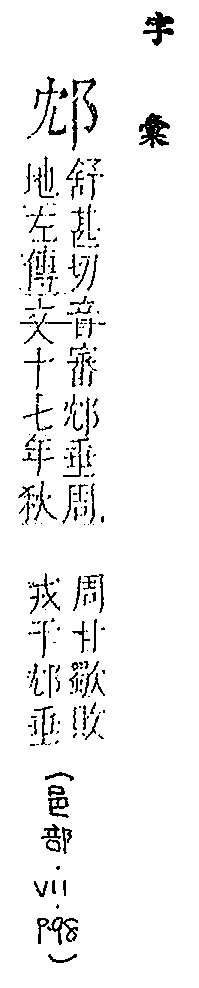 字彙
邥
舒甚切音審邥垂周
地左傳文十七年秋
周甘歜敗
戎于邥垂
(邑部·VII·P.98)